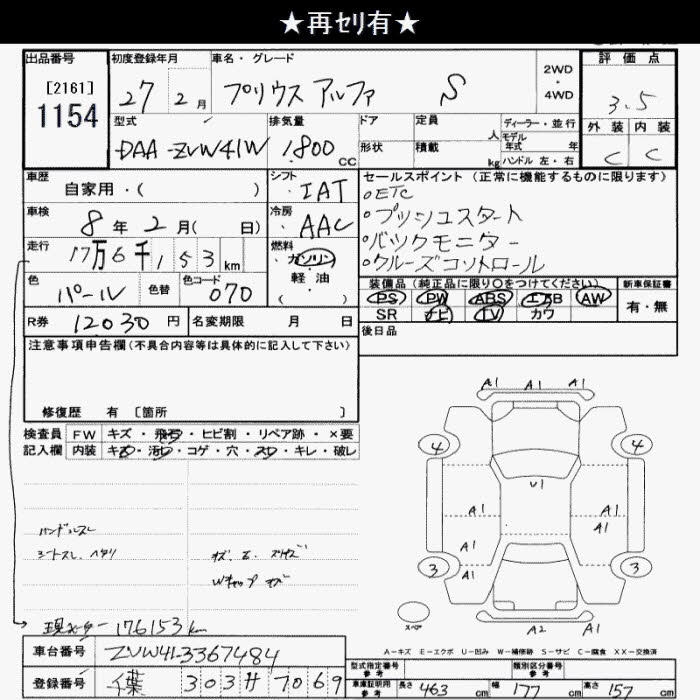 ★再セリ有★
出品番号
[2161]
1154
初度登録年月
27 2月
車名・グレード
プリウス アルファ S
2WD
・
4WD
評価点
3.5
外装 内装
C C
型式
DAA-ZVW41W
排気量
1.800 CC
ドア
形状
定員
人
積載
kg
ディーラー・並行
モデル
年式 年
ハンドル 左・右
車歴
自家用・( )
シフト
IAT
セールスポイント (正常に機能するものに限ります)
○ETC
○プッシュスタート
○バックモニター
○クルーズコントロール
車検
8年 2月( 日)
冷房
AAC
走行
17万6千153km
燃料
ガソリン
・
軽・油
・
( )
色
パール
色替
色コード
070
装備品(純正品に限り○をつけてください)
PS PW ABS エアB AW
SR ナビ TV カワ
新車保証書
有・無
R券 12030円
名変期限 月 日
後日品
注意事項申告欄(不具合内容等は具体的に記入して下さい)
修復歴 有 〔箇所 〕
検査員 FW キズ・飛石・ヒビ割・リペア跡・×要
記入欄 内装 キズ・汚れ・コゲ・穴・スレ・キレ・破レ
ハンドルスレ
シートスレ、ヘタリ
Wキャップ キズ
現メーター 176153km
A1 A1 A1
4 4
U1
A1 A1
A1
A1 A1
3 3
スペア
A2 A1
A-キズ E-エクボ U-凹み W-補修跡 S-サビ C-腐食 XX-交換済
車台番号 ZVW41-3367484
登録番号 千葉 303 H 7069
型式指定番号
参考
類別区分番号
参考
車庫証明用
参考
長さ 463 cm 幅 177 cm 高さ 157 cm